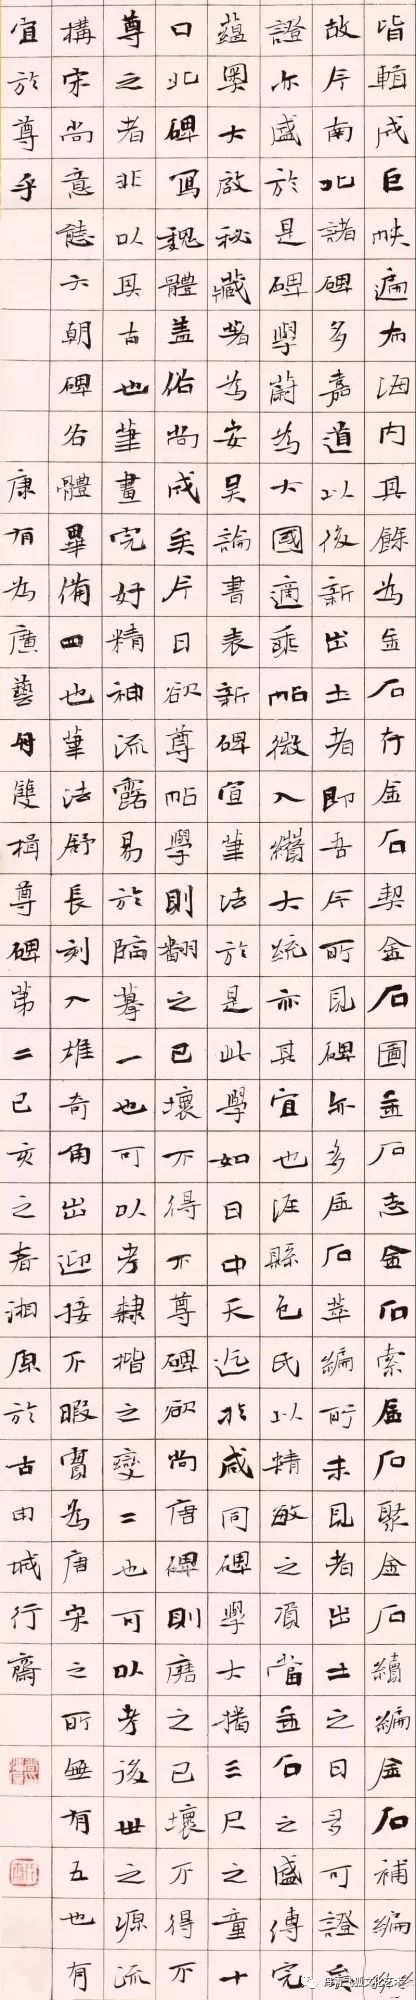 皆輯成巨帙遍布海内其餘為金石存金石契金石圖金石志金石索金石聚金石續編金石補編
故今南北諸碑多嘉道以後新出土者即吾今所見碑亦多金石萃編所未見者出土之日多可證矣
證亦盛於是碑學蔚為大國適乘帖微入纘大統亦其宜也涇縣包氏以精敏之資當金石之盛傳完
蘊奧大啟秘藏著為安吳論書表新碑宣筆法於是此學如日中天迄於咸同碑學大播三尺之童十
口北碑寫魏體蓋俗尚成矣今日欲尊帖學則翻之已壞不得不尊碑欲尚唐碑則磨之已壞不得不
尊之者非以其古也筆畫完好精神流露易於臨摹一也可以考隸楷之變二也可以考後世之源流
構宋尚意態六朝碑各體畢備四也筆法舒長刻入雄奇角出迎接不暇實為唐宋之所無有五也有
宜於尊乎
康有為廣藝舟雙楫尊碑第二己亥之春湘原於古由城行齋